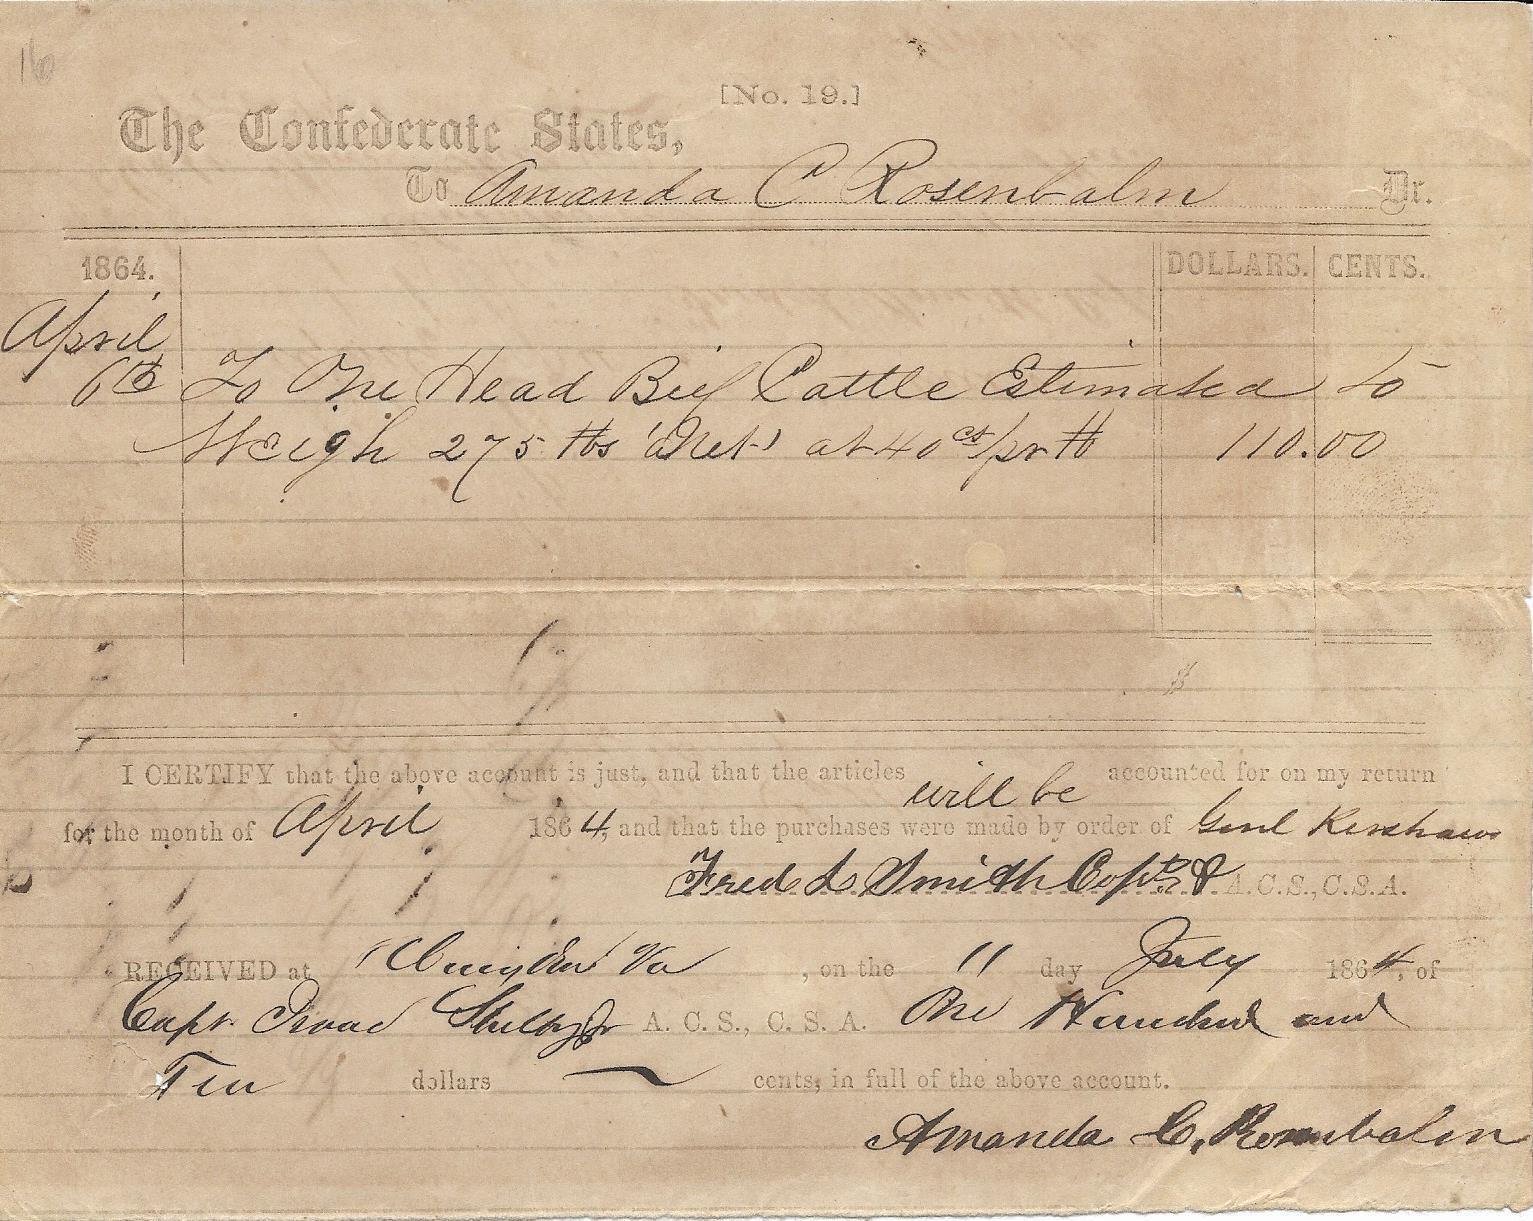 16
[No. 19.]
The Confederate States,
To Amanda C Rosenbalm Dr.
1864. DOLLARS. CENTS.
April
6th To One Head Beef Cattle Estimated to
Weigh 275 lbs (Net) at 40 cts/pr lb 110.00
$
I CERTIFY that the above account is just, and that the articles will be accounted for on my return
for the month of April 1864, and that the purchases were made by order of Genl Kershaw
Fred L Smith Capt & A.C.S., C.S.A.
RECEIVED at Abingdon Va , on the 11 day July 1864, of
Capt. Isaac Shelby Jr A. C. S., C. S. A. One Hundred and
Ten dollars ~ cents, in full of the above account.
Amanda C. Rosenbalm